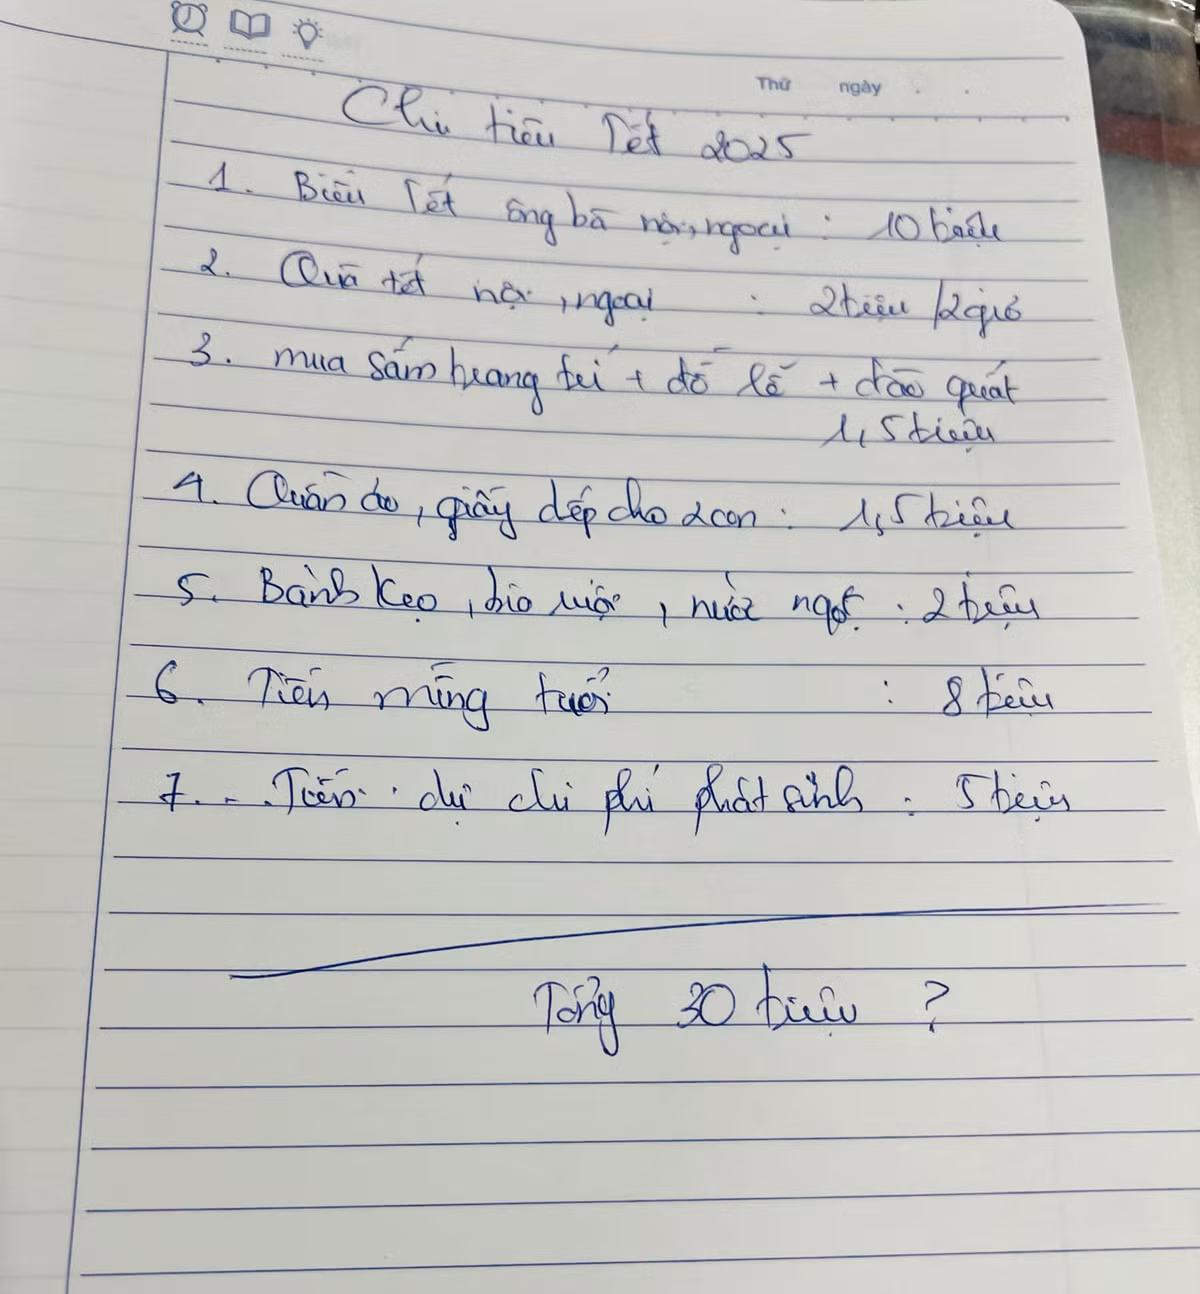 Thứ ngày
Chi tiêu Tết 2025
1. Biếu Tết ông bà nội, ngoại : 10 triệu
2. Quà tết nội, ngoại : 2 triệu / 2 giỏ
3. mua sắm trang trí + đồ lễ + đào quất
1,5 triệu
4. Quần áo, giầy dép cho 2 con : 1,5 triệu
5. Bánh kẹo, bia rượu, nước ngọt : 2 triệu
6. Tiền mừng tuổi : 8 triệu
7. Tiền dự chi phí phát sinh : 5 triệu
Tổng 30 triệu ?